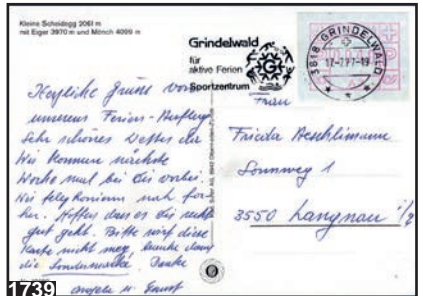 Kleine Scheidegg 2061 m
mit Eiger 3970 m und Mönch 4099 m
Grindelwald
für
aktive Ferien
Sportzentrum
3818 GRINDELWALD
17-7.77-19
Herzliche Grüsse von
unserem Ferien-Ausflug
Sehr schönes Wetter
Wir kommen nächste
Woche mal bei Dir vorbei.
Wir telephonieren noch vor-
her. Hoffen dass es Dir recht
gut geht. Bitte wirf diese
Karte nicht weg,
die Sondermarke. Danke
Frau
Frieda Aeschlimann
Sonnweg 1
3550 Langnau i/E
1739